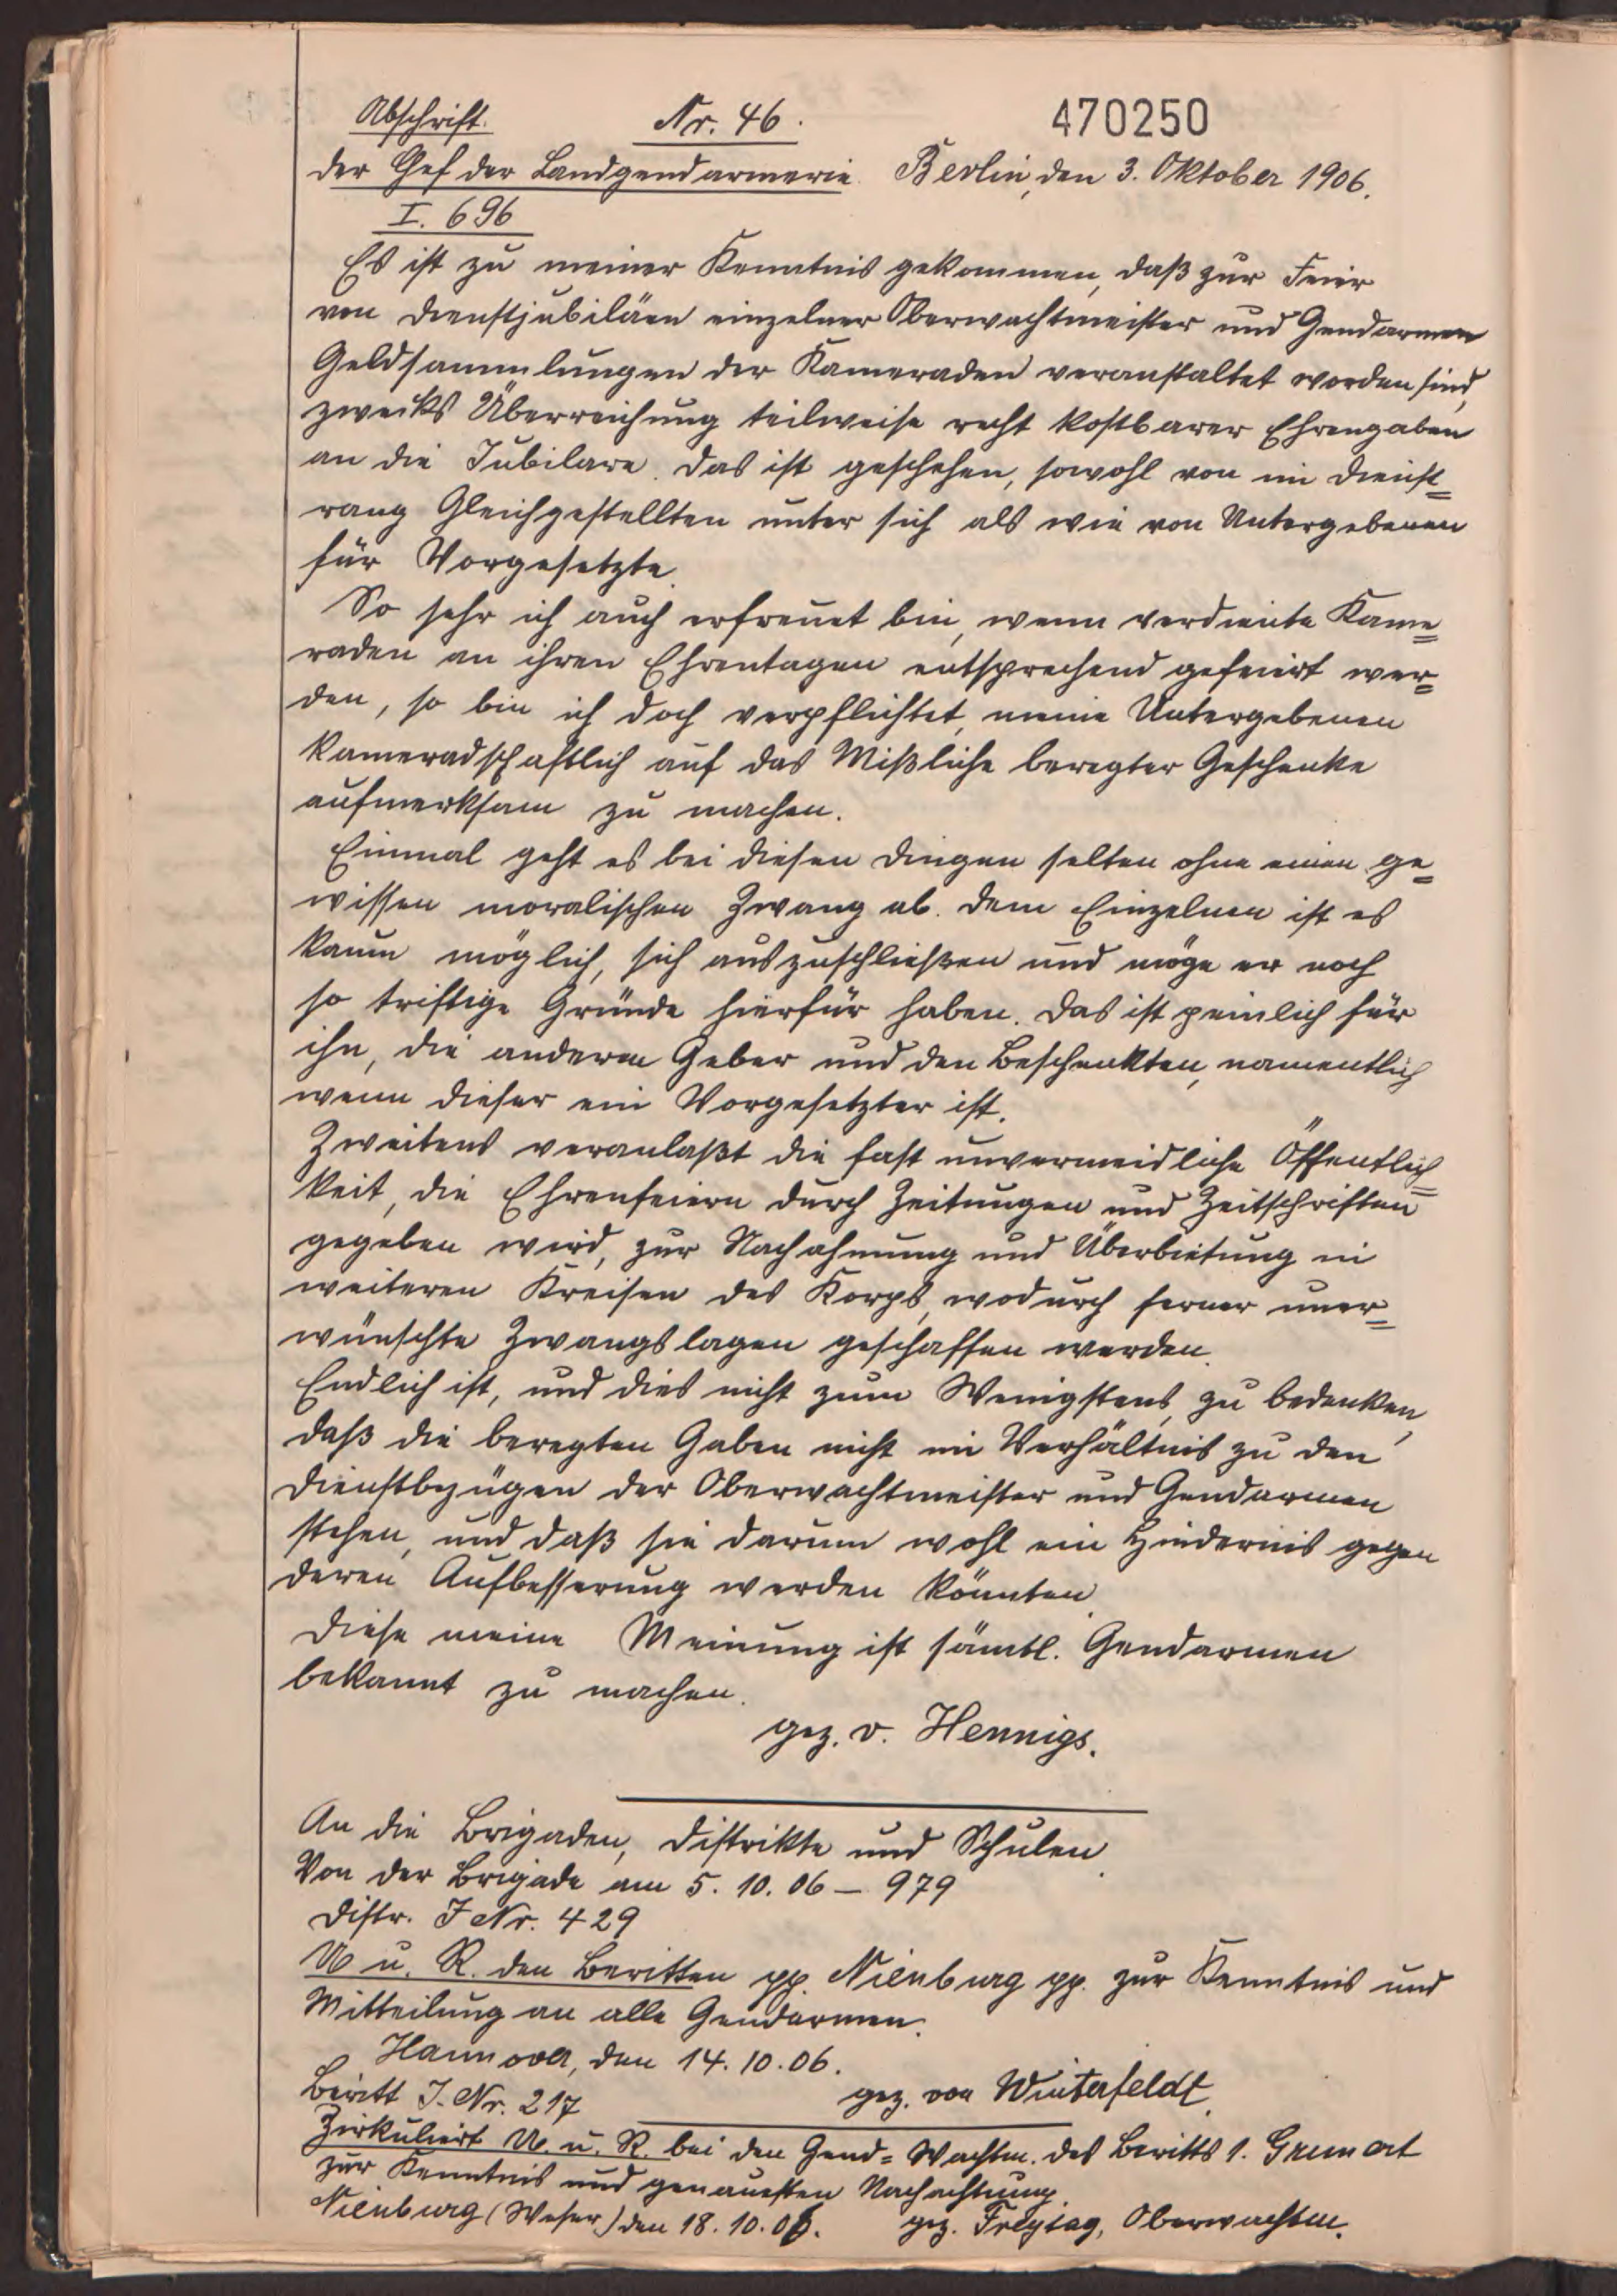 Abschrift.
Nr. 46.
470250
der Chef der Landgendarmerie. Berlin, den 3. Oktober 1906.
I. 696
Es ist zu meiner Kenntnis gekommen, daß zur Feier
von Dienstjubiläen einzelner Oberwachtmeister und Gendarmen
Geldsammlungen der Kameraden veranstaltet worden sind,
zwecks Überreichung teilweise recht kostbarer Ehrengaben
an die Jubilare. Das ist geschehen, sowohl von im Dienst=
rang Gleichgestellten unter sich als wie von Untergebenen
für Vorgesetzte.
So sehr ich auch erfreuet bin, wenn verdiente Kame=
raden an ihren Ehrentagen entsprechend gefeiert wer=
den, so bin ich doch verpflichtet, meine Untergebenen
kameradschaftlich auf das Mißliche beregter Geschenke
aufmerksam zu machen.
Einmal geht es bei diesen Dingen selten ohne einen ge=
wissen moralischen Zwang ab. Dem Einzelnen ist es
kaum möglich, sich auszuschließen und möge er noch
so triftige Gründe hierfür haben. Das ist peinlich für
ihn, die anderen Geber und den Beschenkten, namentlich
wenn dieser ein Vorgesetzter ist.
Zweitens veranlaßt die fast unvermeidliche Öffentlich=
keit, die Ehrenfeiern durch Zeitungen und Zeitschriften
gegeben wird, zur Nachahmung und Überbietung in
weiteren Kreisen des Korps, wodurch ferner uner=
wünschte Zwangslagen geschaffen werden.
Endlich ist, und dies nicht zum Wenigstens, zu bedenken,
daß die beregten Gaben nicht im Verhältnis zu den
Dienstbezügen der Oberwachtmeister und Gendarmen
stehen, und daß sie darum wohl ein Hindernis gegen
deren Aufbesserung werden könnten.
Diese meine Meinung ist sämtl. Gendarmen
bekannt zu machen.
gez. v. Hennigs.
An die Brigaden, Distrikte und Schulen.
Von der Brigade am 5. 10. 06 – 979
Distr. J Nr. 429
U u. R. den Beritten pp. Nienburg pp. zur Kenntnis und
Mitteilung an alle Gendarmen.
Hannover, den 14. 10. 06.
gez. von Winterfeldt.
Beritt J. Nr. 217
Zirkuliert U. u. R. bei den Gend=Wachtm. des Beritts 1.
zur Kenntnis und genauesten Nachachtung.
Nienburg (Weser) den 18. 10. 06. gez. Freytag, Oberwachtm.